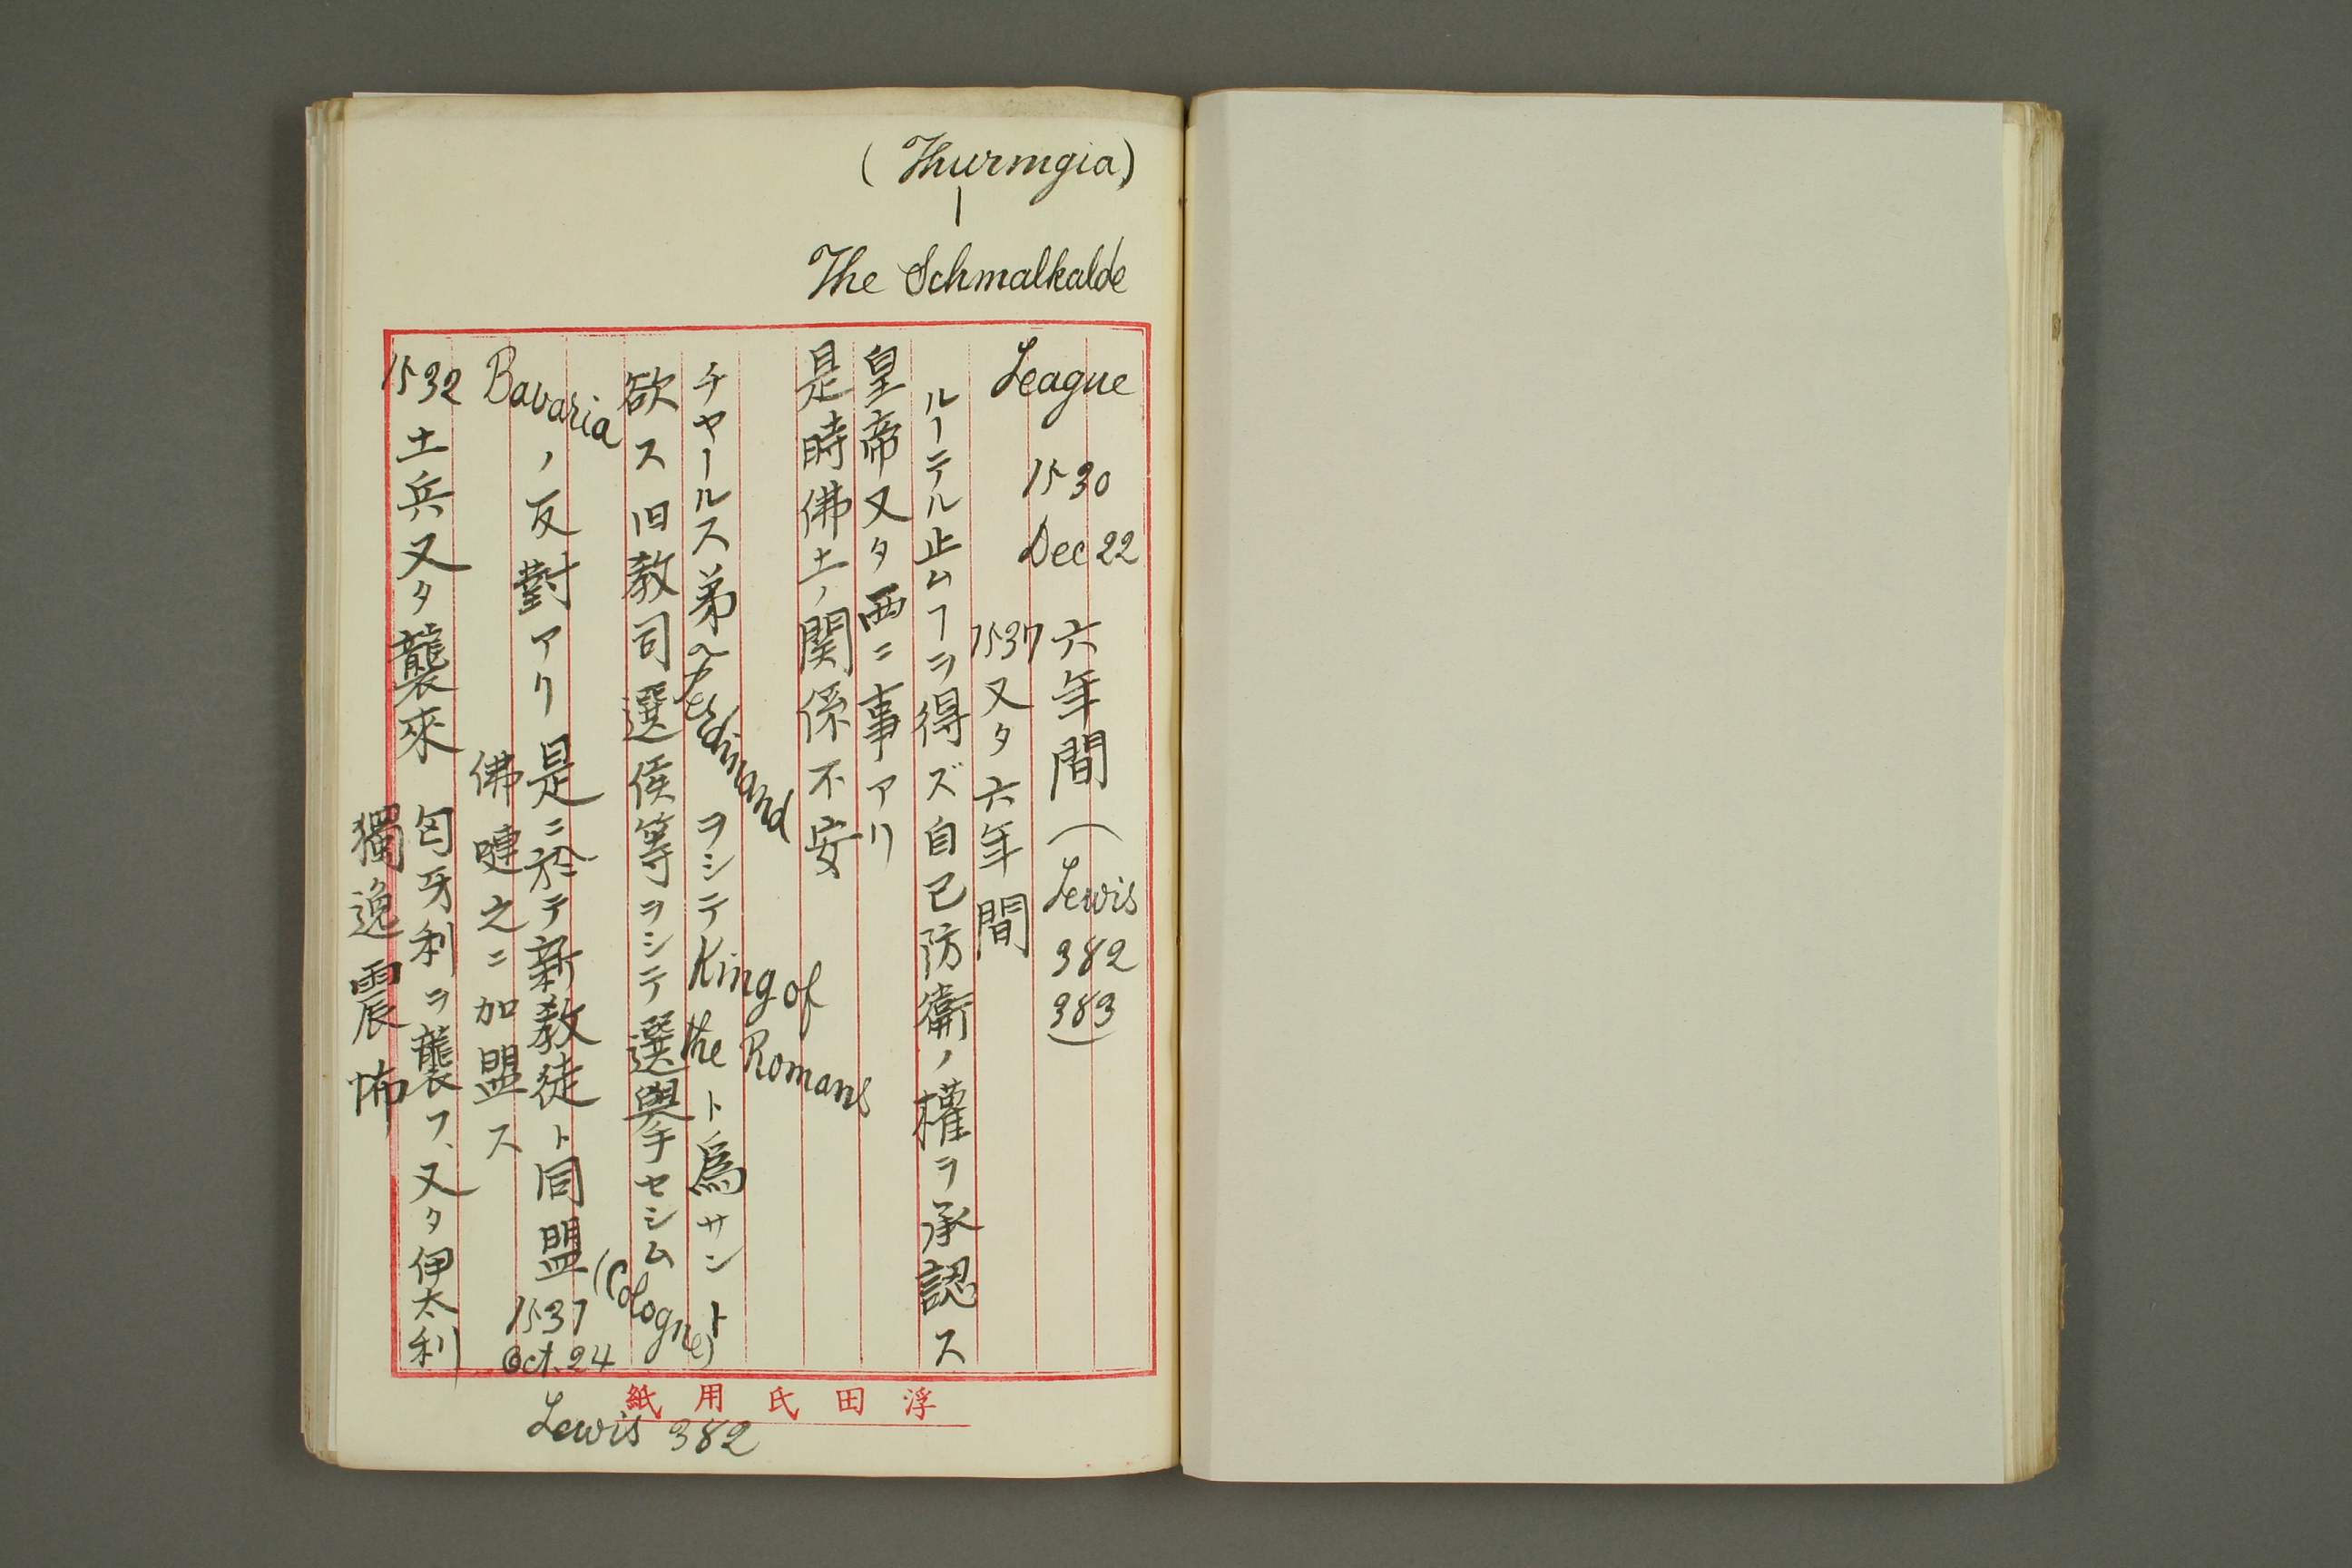 (Thuringia)
The Schmalkalde
League 1530 Dec 22 六年間(Lewis 382 383)
1537又タ六年間
ルーテル止ムヿヲ得ズ自己防衛ノ權ヲ承認ス
皇帝又タ西ニ事アリ
是時佛土ノ関係不安
チャールス弟 Ferdinand ヲシテ King of the Romans ト為サント
欲ス旧教司選侯等ヲシテ選擧セシム (Cologne)
Bavaria ノ反對アリ是ニ於テ新教徒ト同盟 1537 Oct. 24 Lewis 382
佛嗹之ニ加盟ス
1532土兵又タ襲來 匈牙利ヲ襲フ、又タ伊太利
獨逸震怖
浮田氏用紙